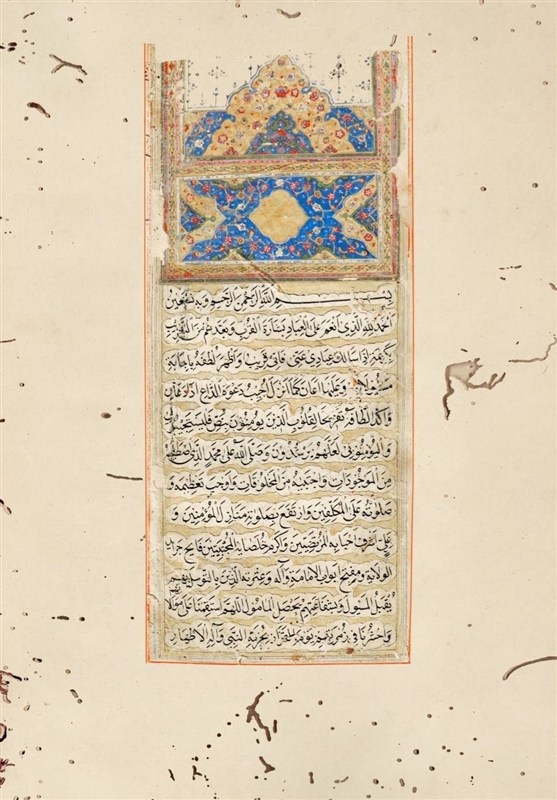 بسم الله الرحمن الرحيم وبه نستعين
الحمد لله الذي انعم على العباد ببشارة القرب وبعدهم من
اذا سالك عبادي عني فاني قريب واظهر لطفه باجابة
اجيب دعوة الداع اذا دعان
لقلوب الذين يومنون بنص فليستجيبوا لي
وليؤمنوا بي لعلهم يرشدون وصلى الله على محمد الذي اصطفاه
من الموجودات واجتبيه من المخلوقات واوجب تعظيمه و
صلوته على المكلفين وارتفع بصلوته منازل المؤمنين و
على اشرف احبابه المرتضيين واكرم خلصايه المجتبيين فاتح
الولاية ومفتح ابواب الامامة وآله وعترته الذين بالتوسل بهم
يقبل المسول وبشفاعتهم يحصل المامول اللهم استقمنا على
واحشرنا في زمرتهم يوم بحرمة النبي وآله الاطهار